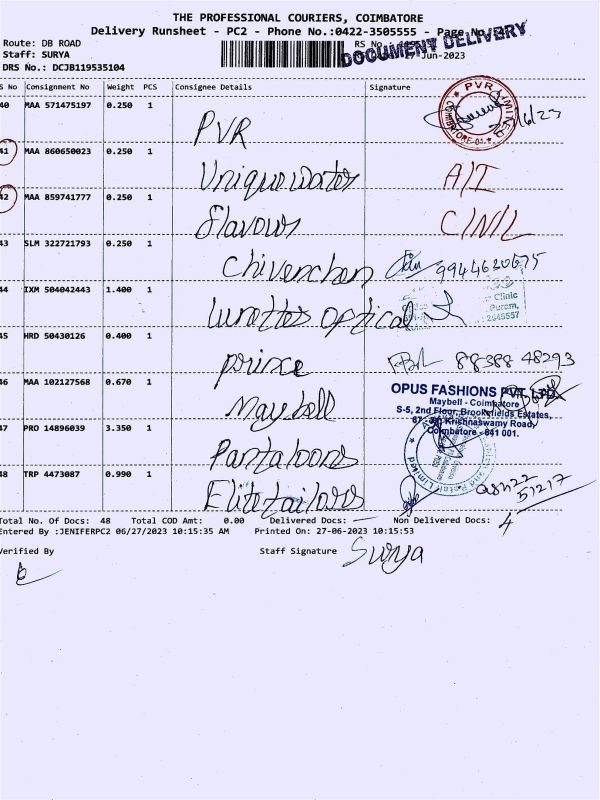 THE PROFESSIONAL COURIERS, COIMBATORE
Delivery Runsheet - PC2 - Phone No.:0422-3505555 - Page No.
DOCUMENT DELIVERY
Route: DB ROAD
Staff: SURYA
27-Jun-2023
DRS No.: DCJB119535104
S No Consignment No Weight PCS Consignee Details Signature
40 MAA 571475197 0.250 1 PVR
PVR LIMITED COIMBATORE-01
41 MAA 860650023 0.250 1 Unique water A/I
42 MAA 859741777 0.250 1 flavours C/N/L
43 SLM 322721793 0.250 1 Chivenchen
44 IXM 504042443 1.400 1 lunettes optical
Clinic
Puram,
2545557
45 HRD 50430126 0.400 1 prince 88388 48293
46 MAA 102127568 0.670 1 Maybell
OPUS FASHIONS PVT. LTD.
Maybell - Coimbatore
S-5, 2nd Floor, Brookefields Estates,
Krishnaswamy Road,
Coimbatore - 641 001.
47 PRO 14896039 3.350 1 Pantaloons
48 TRP 4473087 0.990 1 Elite tailors
51217
Total No. Of Docs: 48 Total COD Amt: 0.00 Delivered Docs: Non Delivered Docs: 4
Entered By :JENIFERPC2 06/27/2023 10:15:35 AM Printed On: 27-06-2023 10:15:53
Verified By Staff Signature Surya